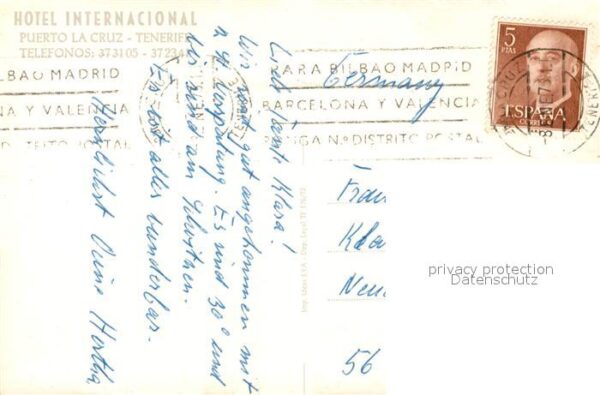 HOTEL INTERNACIONAL
PUERTO LA CRUZ - TENERIFE
TELEFONOS: 373105 - 37234
BILBAO MADRID
NA Y VALENCIA
DISTRITO POSTAL
PARA BILBAO MADRID
BARCELONA Y VALENCIA
PONGA N.º DISTRITO POSTAL
5
PTAS
ESPAÑA
CORREOS
Germany
Liebe Tante Klara!
Wir sind gut angekommen mit
2 Verspätung. Es sind 30° und
wir sind am Schwitzen.
Es ist alles wunderbar.
Herzlichst Deine Hertha
Frau
Kla
Neu
56
privacy protection
Datenschutz